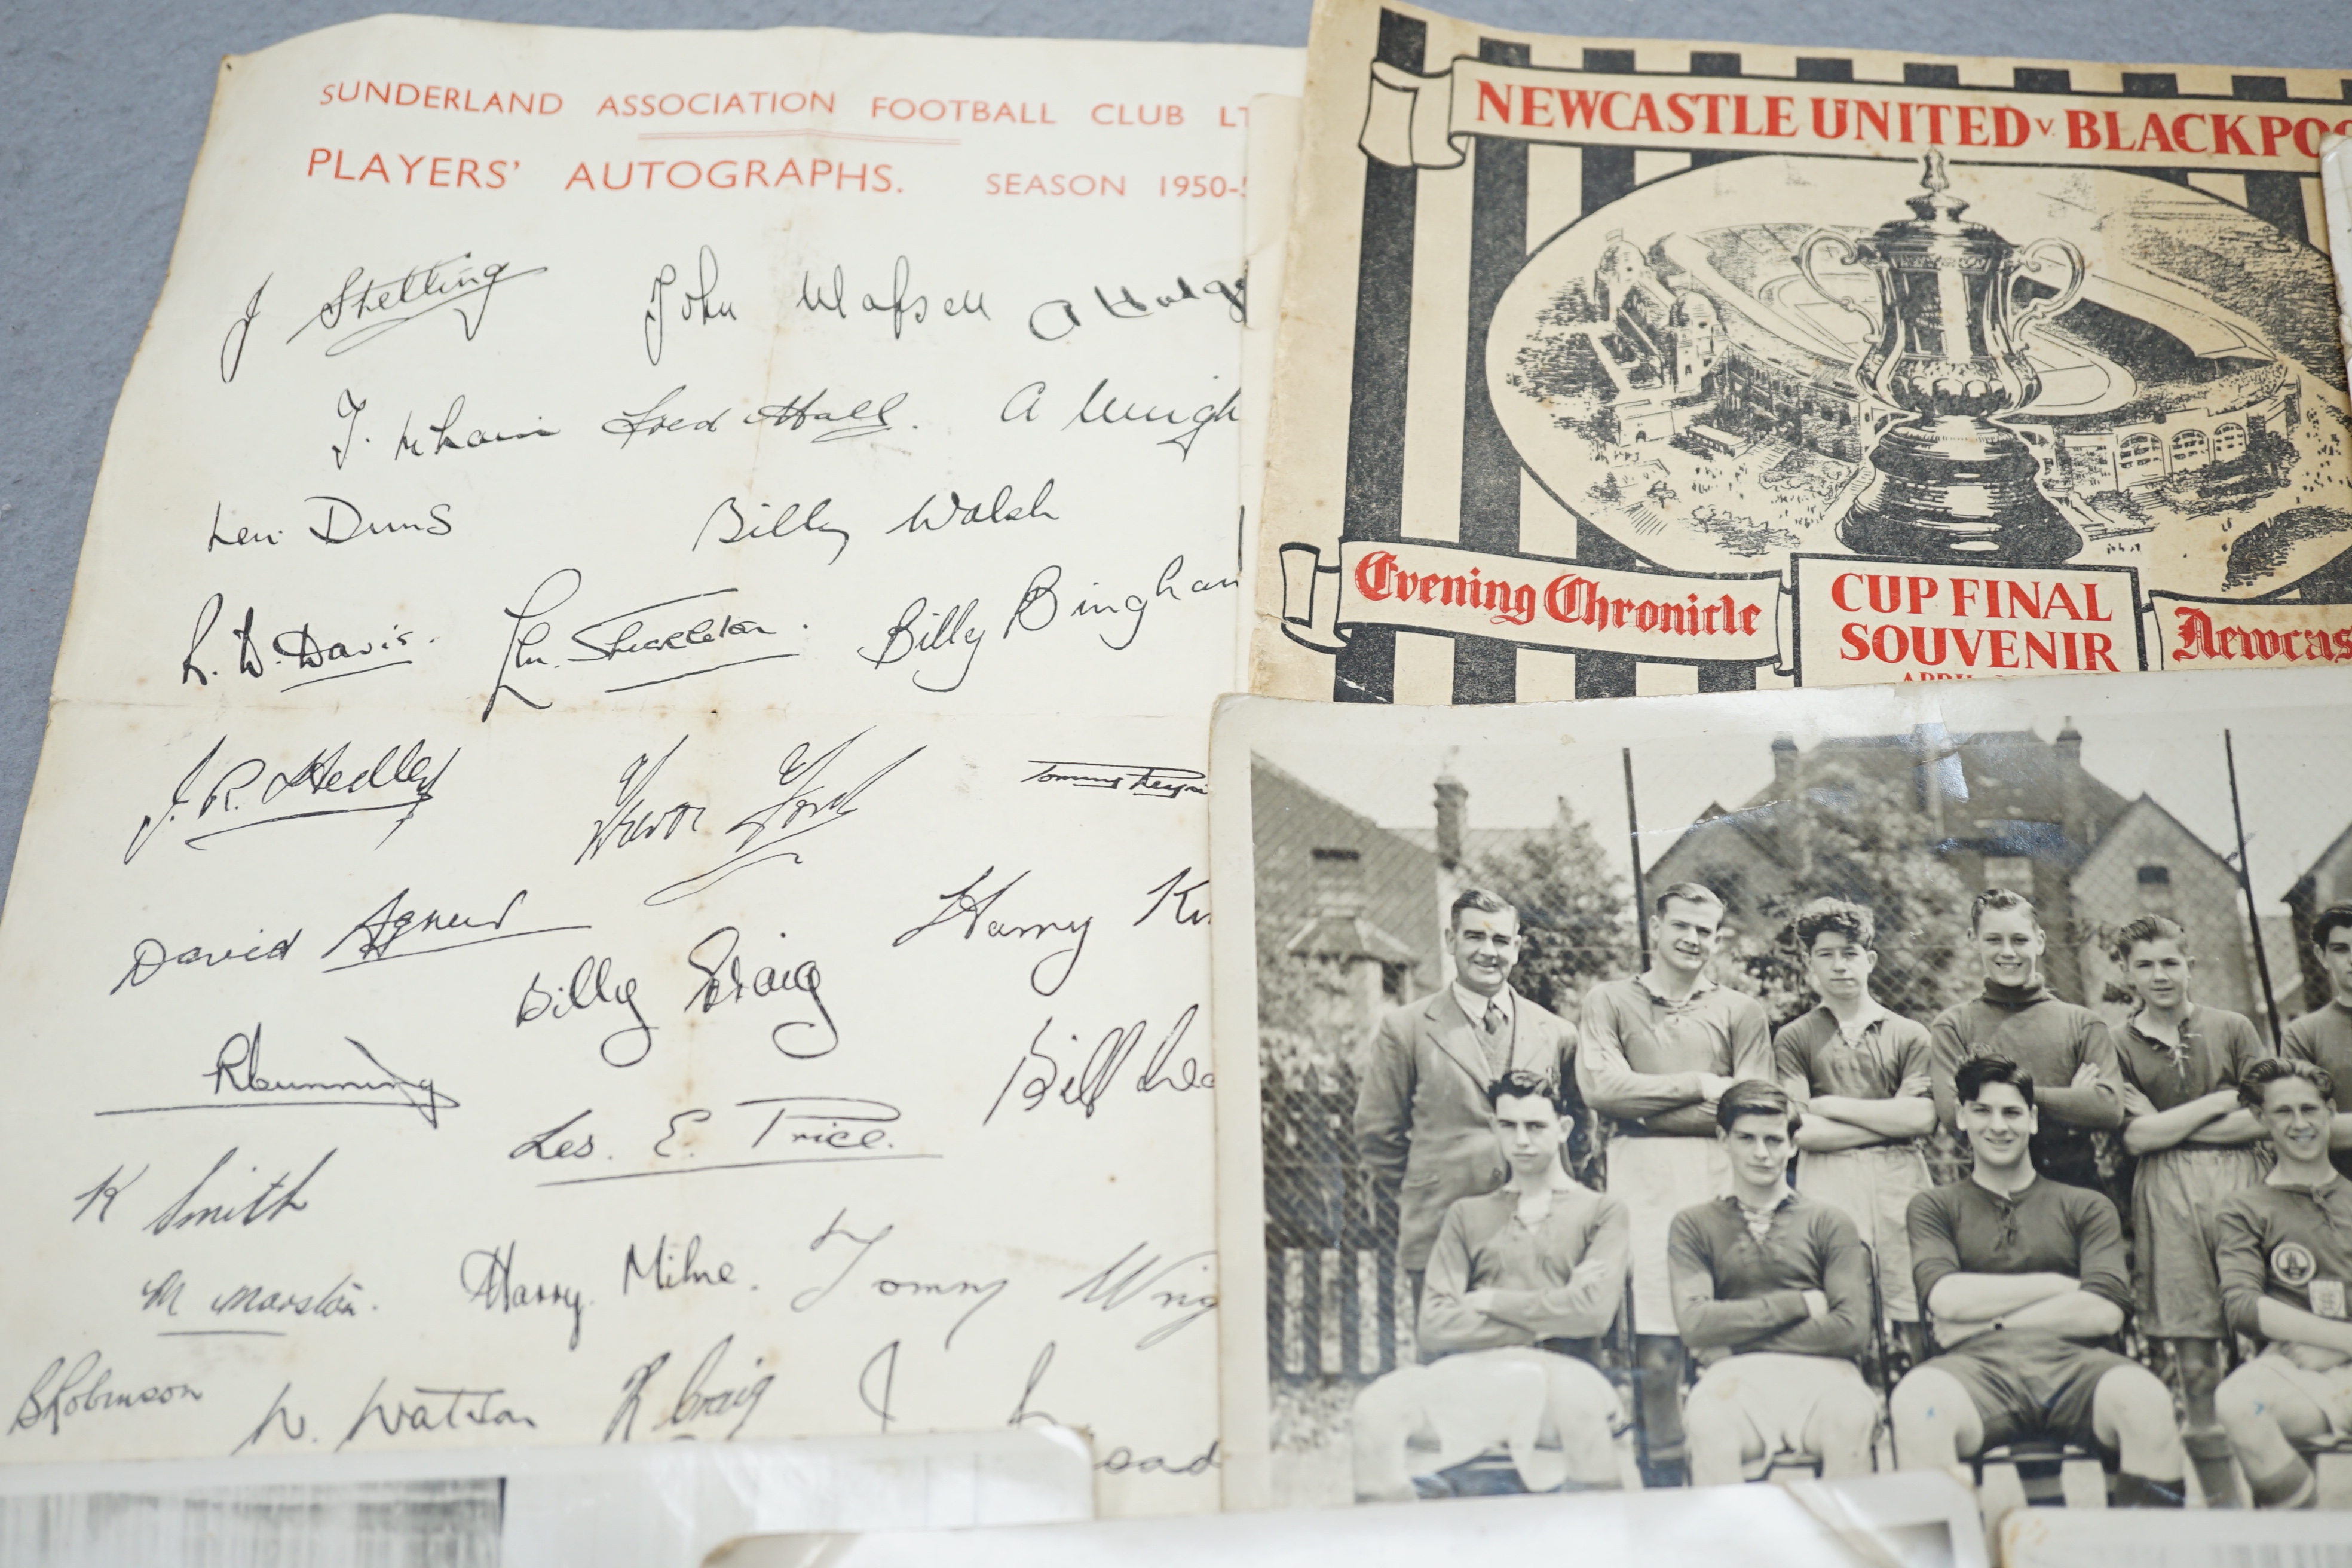 SUNDERLAND ASSOCIATION FOOTBALL CLUB
PLAYERS' AUTOGRAPHS. SEASON 1950-
J Stelling John
Fred Hall. A
Len Duns Billy Walsh
R. W. Davis. Len. Shackleton. Billy Bingham
J. R. Hedley Trevor Ford Tommy
David Agnew Harry
Billy Craig
Bill
Les. E. Price.
K Smith
M Marston. Harry Milne. Tommy
B Robinson W. Watson R Craig J
NEWCASTLE UNITED v. BLACKPOO
Evening Chronicle
CUP FINAL
SOUVENIR
Newcas